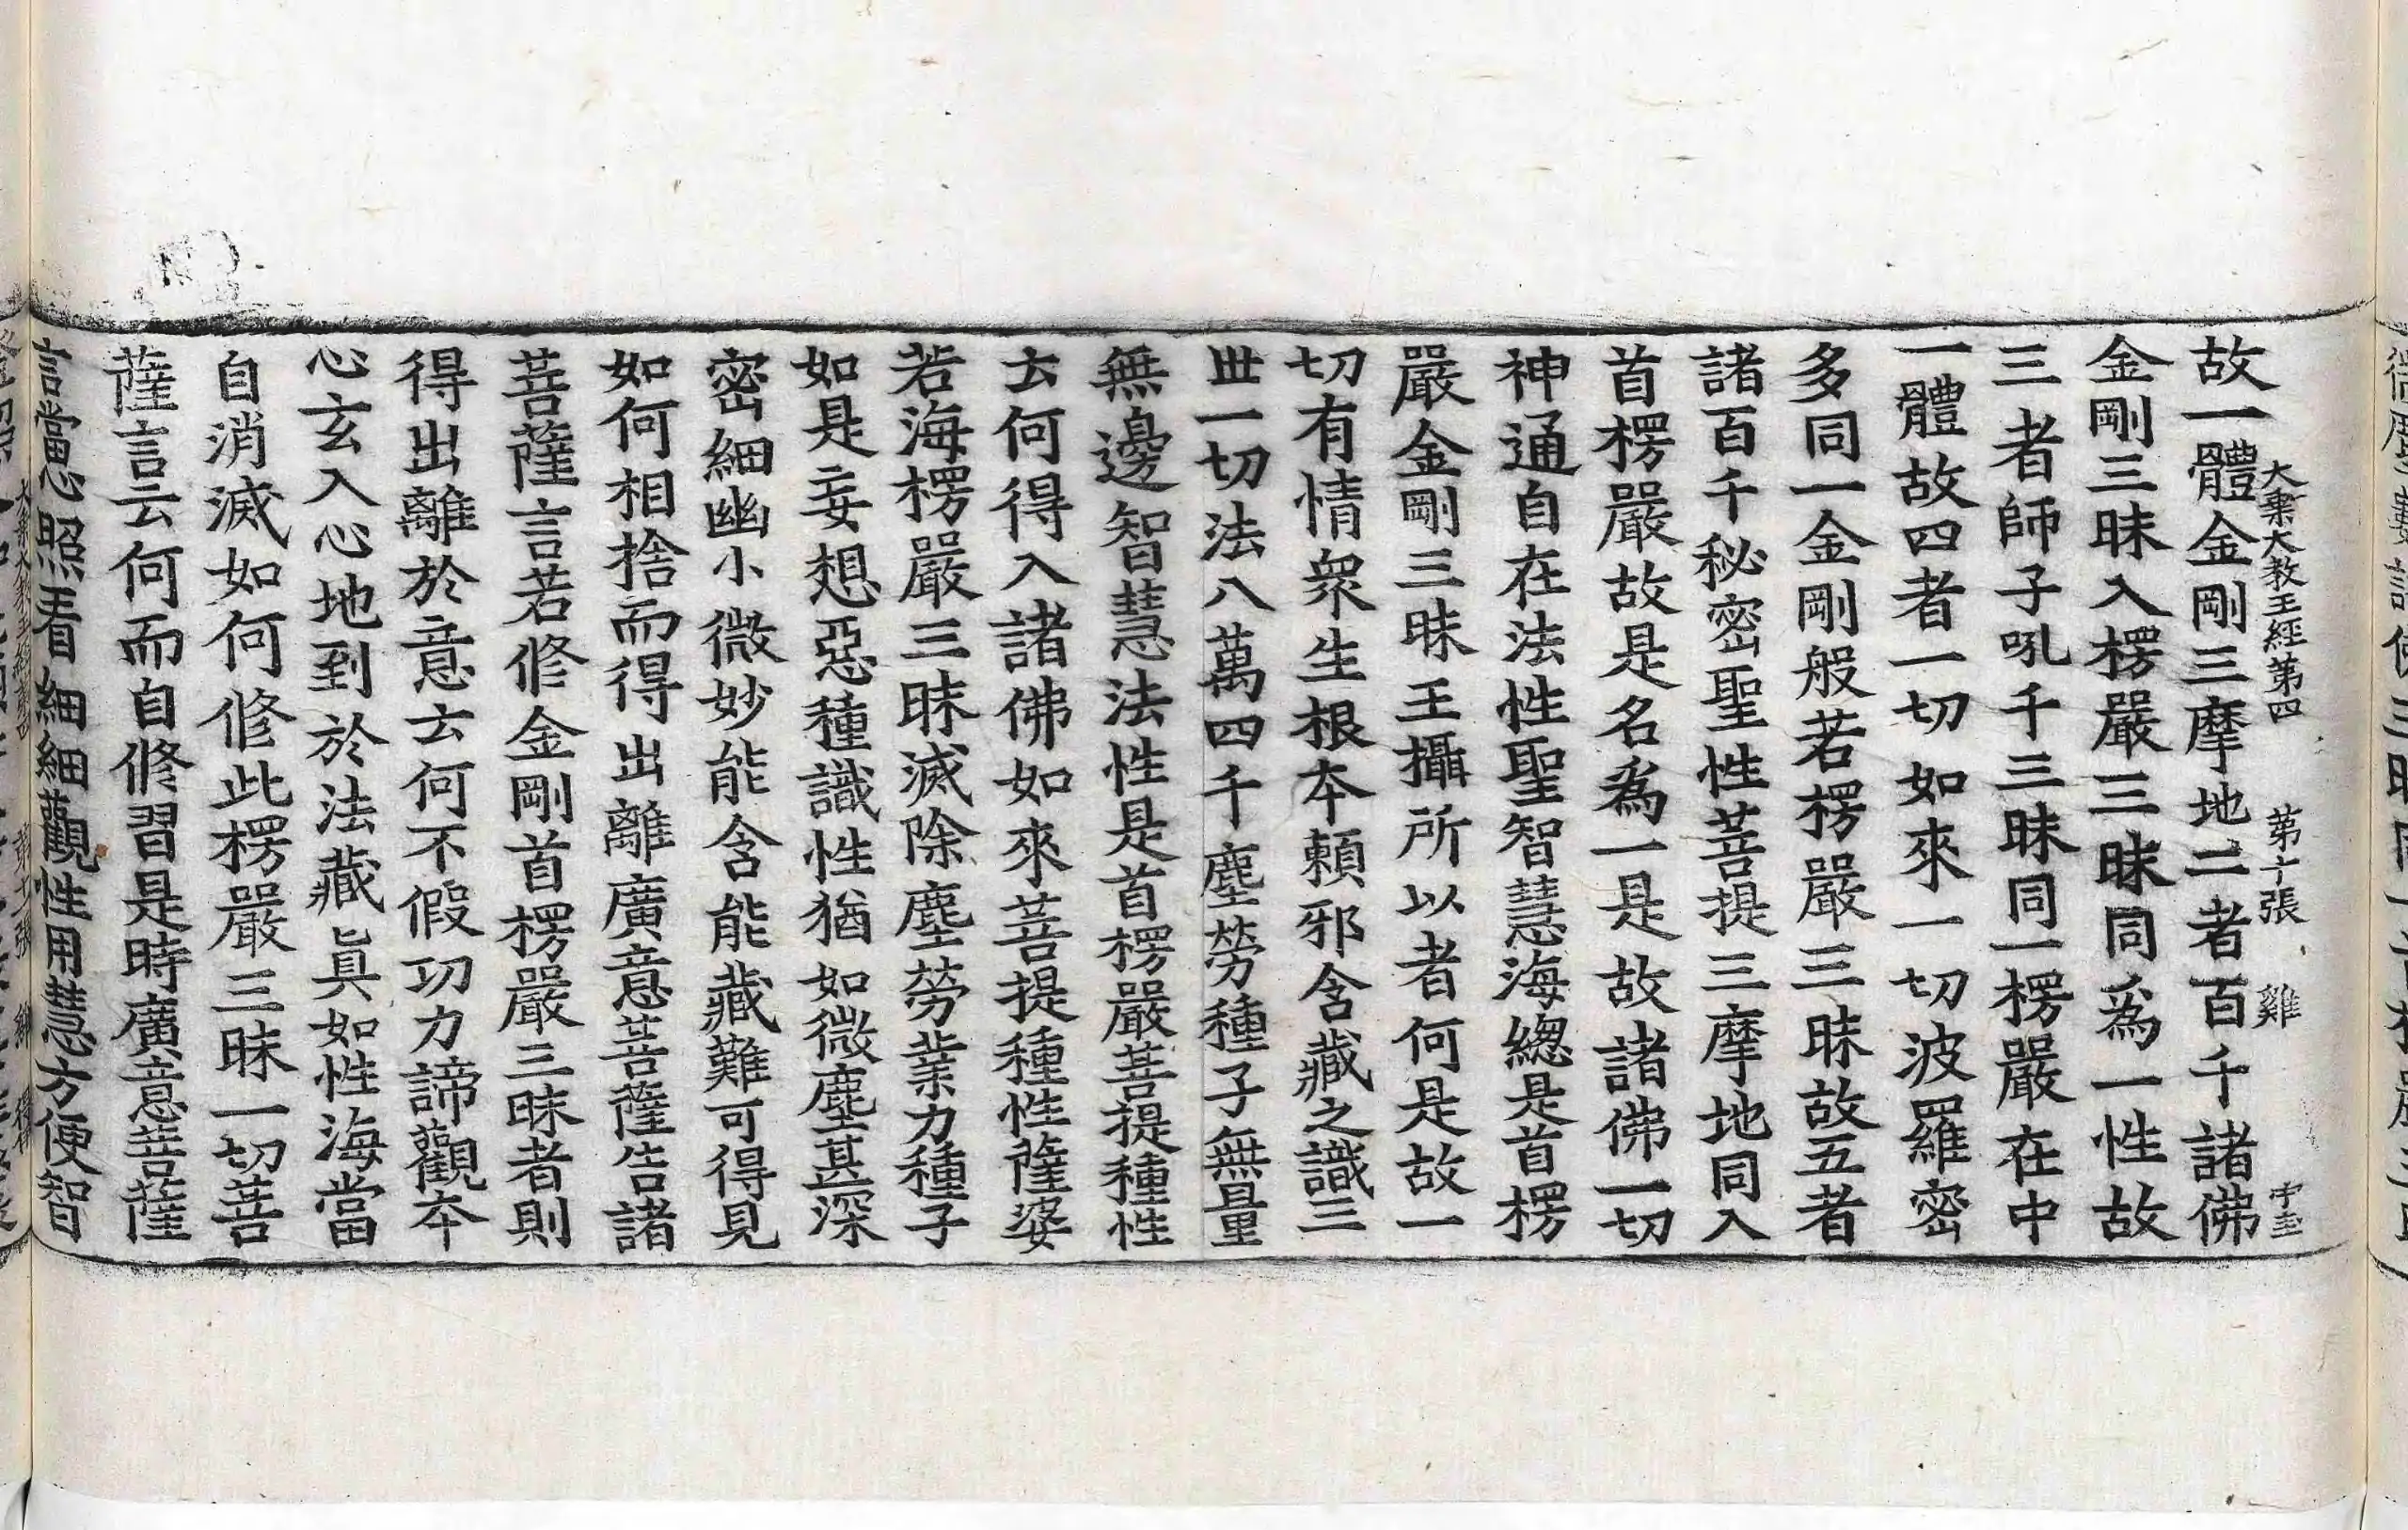 大乗大教王經第四 第十張 雞 中玉
故一體金剛三摩地二者百千諸佛
金剛三昧入楞嚴三昧同爲一性故
三者師子吼千三昧同一楞嚴在中
一體故四者一切如來一切波羅密
多同一金剛般若楞嚴三昧故五者
諸百千秘密聖性菩提三摩地同入
首楞嚴故是名爲一是故諸佛一切
神通自在法性聖智慧海總是首楞
嚴金剛三昧王攝所以者何是故一
切有情衆生根本賴邪含藏之識三
世一切法八萬四千塵勞種子無量
無邊智慧法性是首楞嚴菩提種性
云何得入諸佛如來菩提種性薩婆
若海楞嚴三昧滅除塵勞業力種子
如是妄想惡種識性猶如微塵甚深
密細幽小微妙能含能藏難可得見
如何相捨而得出離廣意菩薩告諸
菩薩言若修金剛首楞嚴三昧者則
得出離於意云何不假功力諦觀本
心玄入心地到於法藏眞如性海當
自消滅如何修此楞嚴三昧一切菩
薩言云何而自修習是時廣意菩薩
言當心照看細細觀性用慧方便智